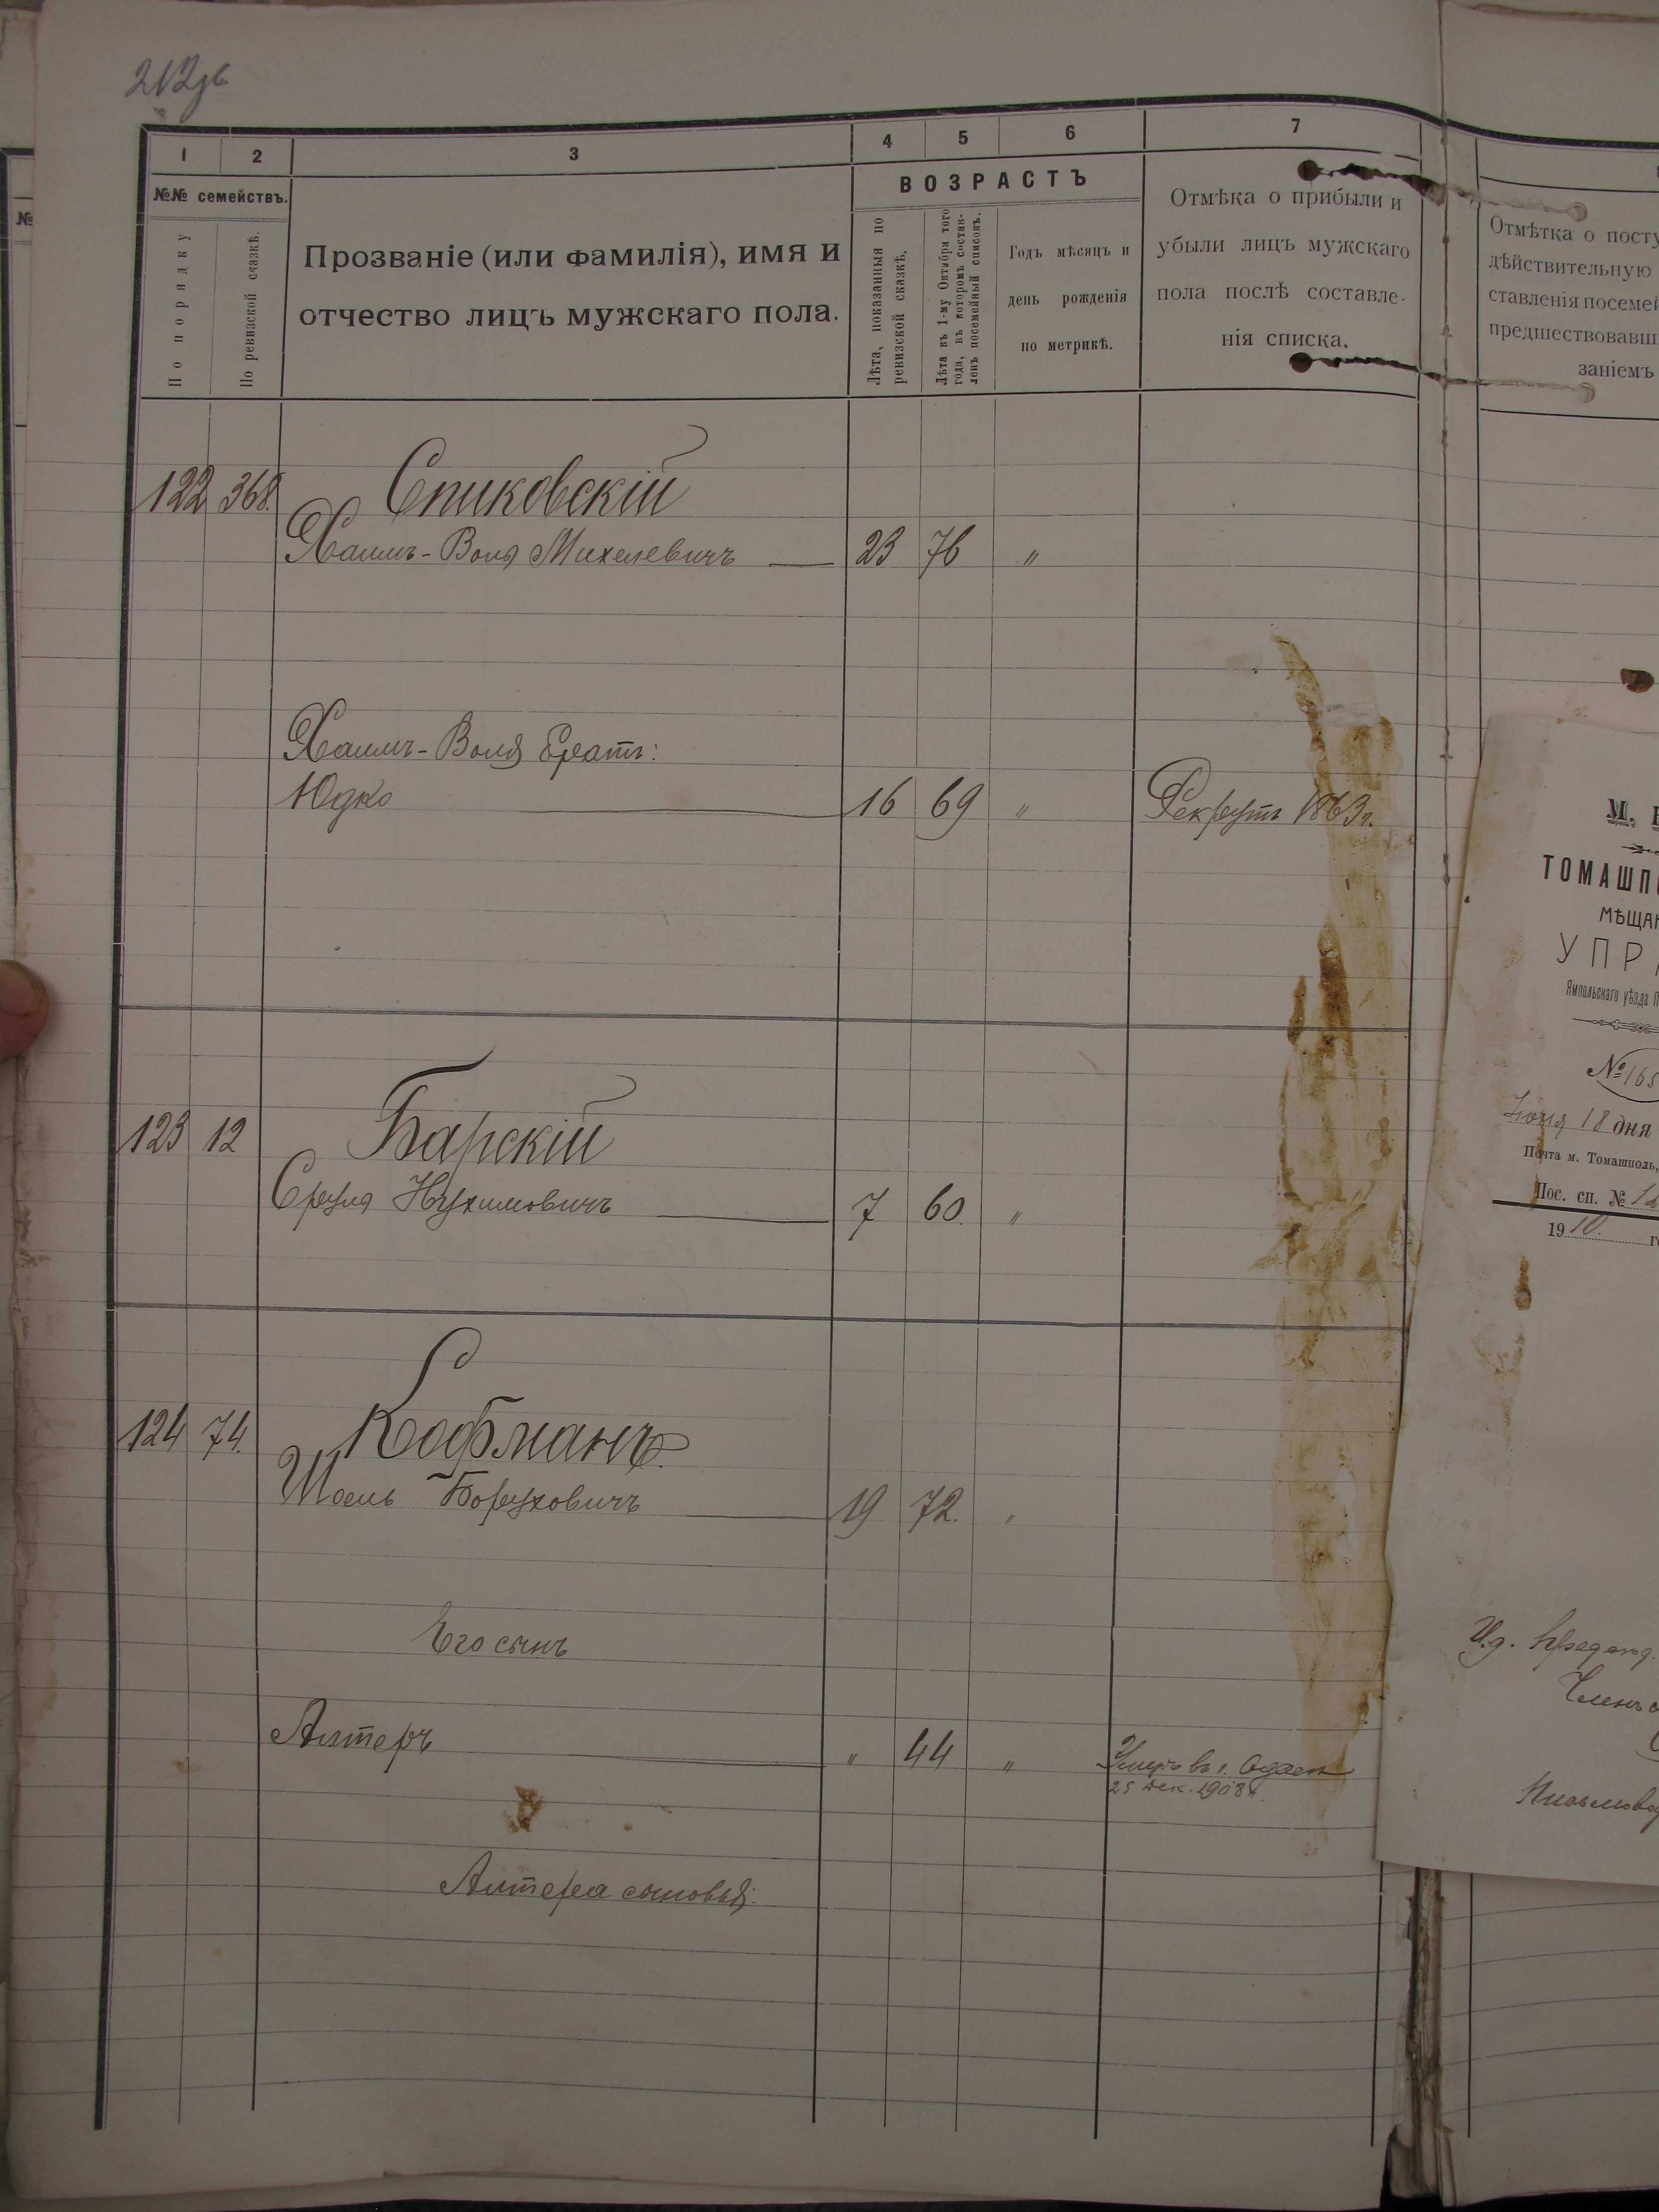 1 2 3 4 5 6 7
№№ семействъ.
По порядку
По ревизской сказкѣ.
Прозваніе (или фамилія), имя и
отчество лицъ мужскаго пола.
ВОЗРАСТЪ
Лѣта, показанныя по
ревизской сказкѣ.
Лѣта къ 1-му Октября того
года, въ которомъ состав-
ленъ посемейный списокъ.
Годъ мѣсяцъ и
день рожденія
по метрикѣ.
Отмѣка о прибыли и
убыли лицъ мужскаго
пола послѣ составле-
нія списка.
122 368. Спиковскій
Хаимъ-Воля Михелевичъ 23 76 "
Хаимъ-Воля братъ:
Юдко 16 69 " Рекрутъ 1863 г.
123 12 Барскій
Сруля Нухимовичъ 7 60. "
124 74. Кофманъ.
Шоель Боруховичъ 19 72. "
Его сынъ
Алтеръ " 44 " Умеръ въ г. Одессѣ
25 дек. 1908 г.
Алтера сыновья:
№
Отмѣтка о
дѣйствительную
ставленія
заніемъ
М.
ТОМАШПО
МѢЩАН
УПР
Ямпольскаго уѣзда П
№ 165
Іюня 18 дня
Почта м. Томашполь,
Пос. сп. №
1910. г
И.д.
Членъ